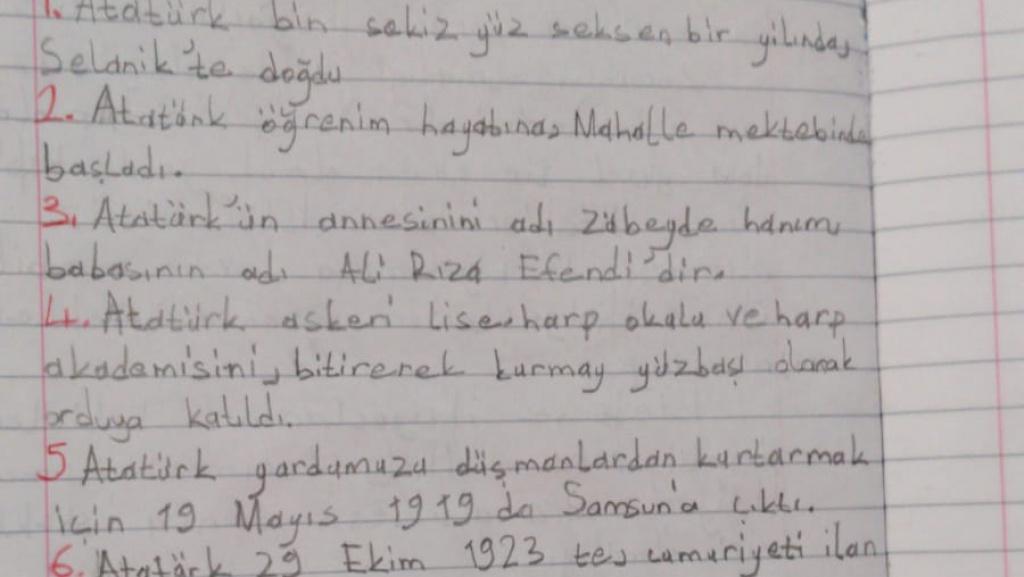 1. Atatürk bin sekiz yüz seksen bir yılında,
Selanik'te doğdu
2. Atatürk öğrenim hayatına, Mahalle mektebinde
başladı.
3. Atatürk'ün annesinini adı Zübeyde hanım,
babasının adı Ali Rıza Efendi'dir.
4. Atatürk askeri lise, harp okulu ve harp
akademisini, bitirerek kurmay yüzbaşı olarak
orduya katıldı.
5 Atatürk yardumuzu düşmanlardan kurtarmak
için 19 Mayıs 1919 da Samsun'a çıktı.
6. Atatürk 29 Ekim 1923 te, cumuriyeti ilan